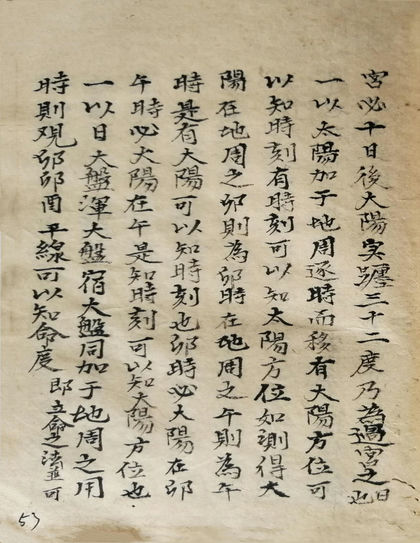 宮必十日後太陽実躔三十二度乃為過宮之日也
一以太陽加于地周逐時而移有太陽方位可
以知時刻有時刻可以知太陽方位如測得太
陽在地周之卯則為卯時在地周之午則為午
時是有太陽可以知時刻也卯時必太陽在卯
午時必太陽在午是知時刻可以知太陽方位也
一以日大盤渾大盤宿大盤同加于地周之用
時則观卯卯酉平線可以知命度即立命之法並可
53